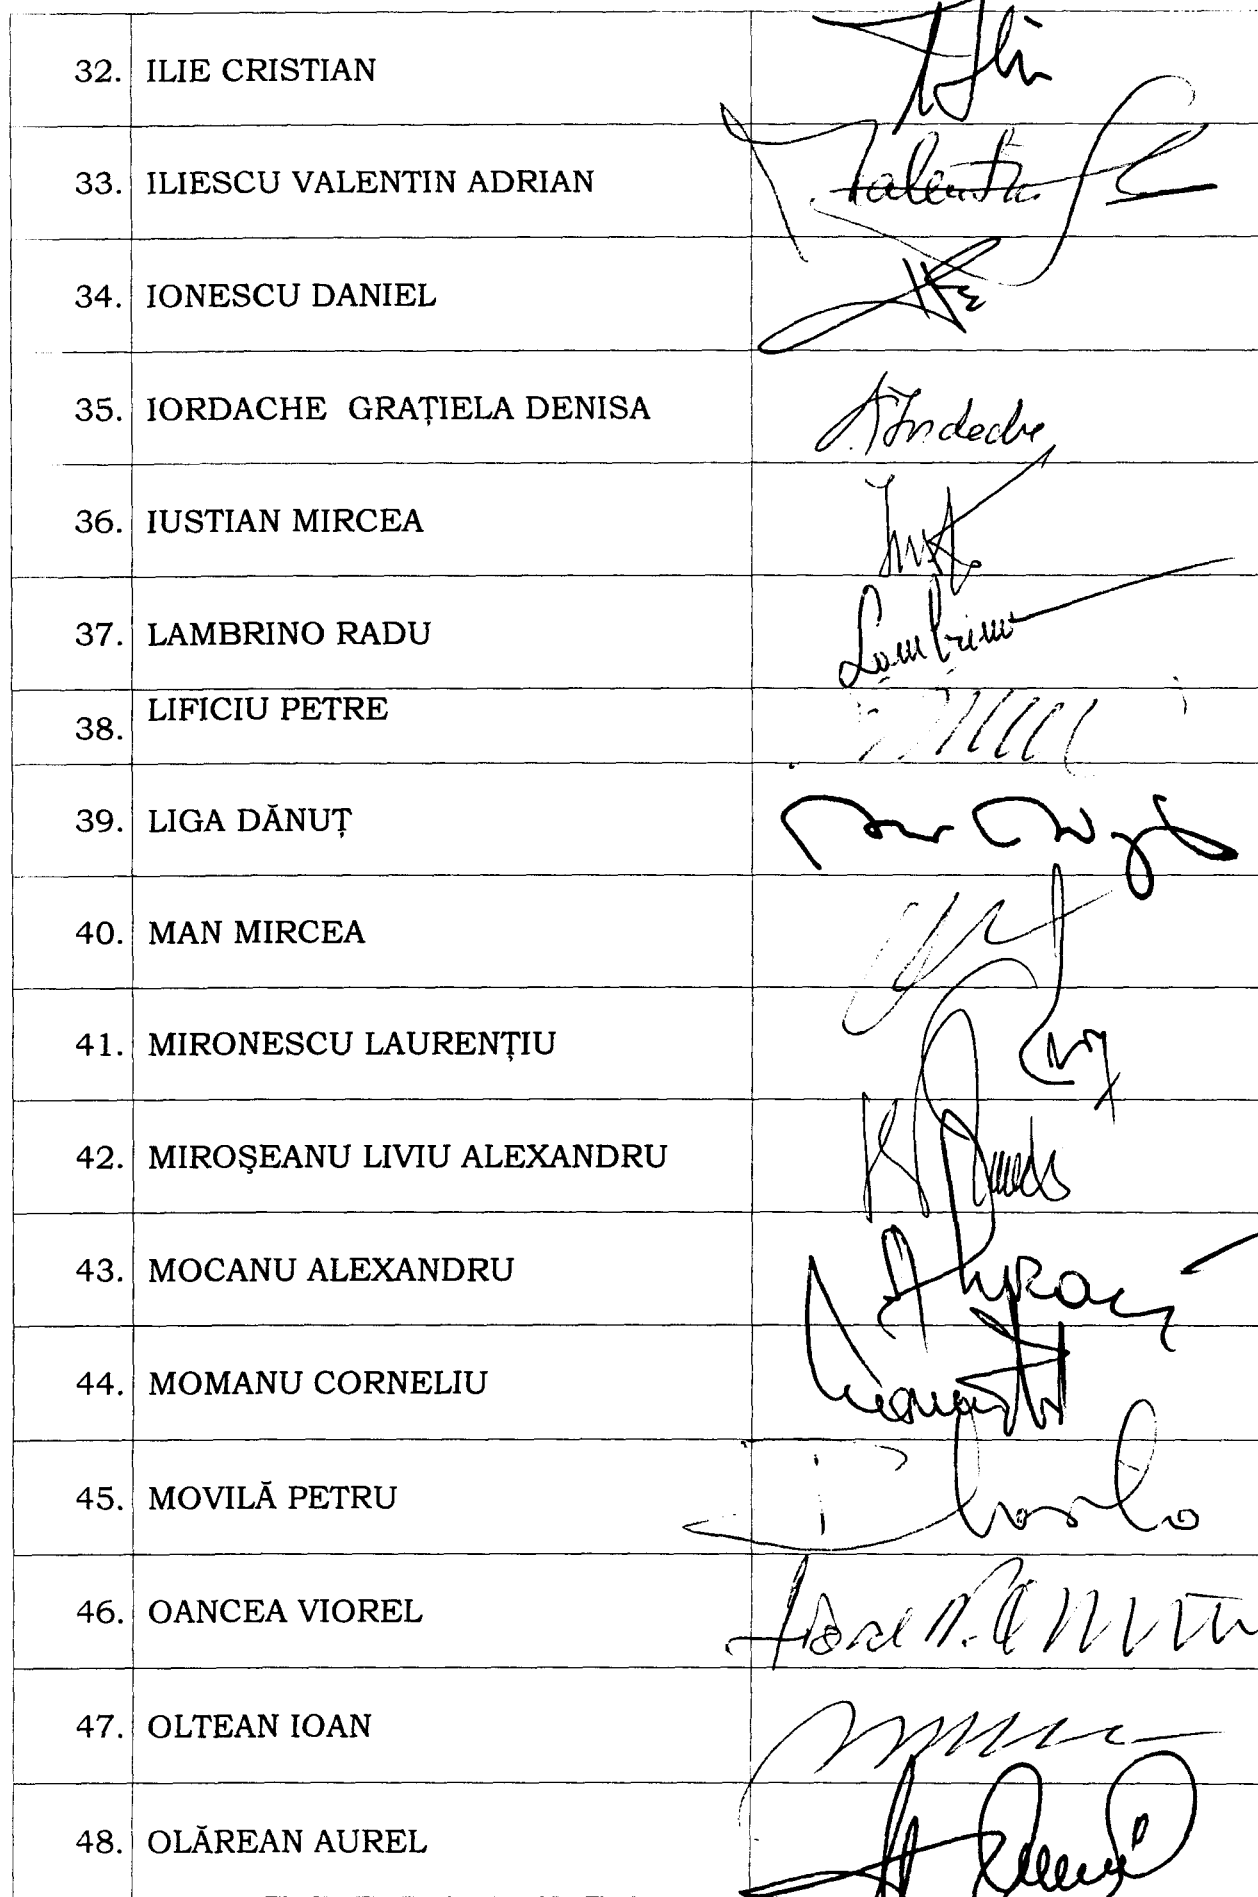 32. ILIE CRISTIAN
33. ILIESCU VALENTIN ADRIAN Valentin
34. IONESCU DANIEL
35. IORDACHE GRAȚIELA DENISA
36. IUSTIAN MIRCEA
37. LAMBRINO RADU Lambrino
38. LIFICIU PETRE
39. LIGA DĂNUȚ
40. MAN MIRCEA
41. MIRONESCU LAURENȚIU
42. MIROȘEANU LIVIU ALEXANDRU
43. MOCANU ALEXANDRU
44. MOMANU CORNELIU
45. MOVILĂ PETRU
46. OANCEA VIOREL
47. OLTEAN IOAN
48. OLĂREAN AUREL